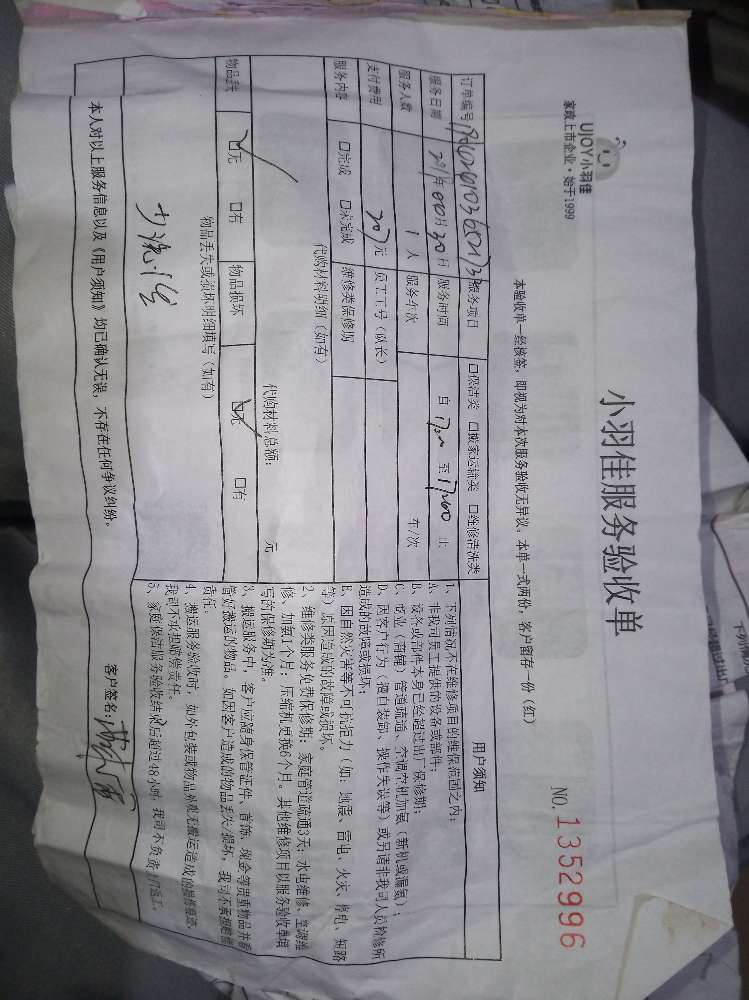 UJOY小羽佳
家政上市企业·始于1999
小羽佳服务验收单
NO. 1352996
本验收单一经核签，即视为对本次服务验收无异议，本单一式两份，客户留存一份（红）
订单编号 服务项目 口保洁类 口搬家运输类 口维修清洗类
服务日期 年 月30日 服务时间 自 至 17:00 止
服务人数 1 人 服务车次 车/次
支付费用 元 员工工号（队长）
服务内容 口完成 口未完成 维修类保修期
代购材料明细（如有）
代购材料总额： 元
物品丢失 口无 口有 物品损坏 口无 口有
物品丢失或损坏明细填写（如有）
用户须知
1、下列情况不在维修项目的维保范围之内：
A、非我司员工提供的设备或部件；
B、设备或部件本身已经超过出厂保修期；
C、商业（商铺）管道疏通、空调空机加氨（新机或漏氨）；
D、因客户行为（擅自装卸、操作失误等）或另请非我司人员检修所
造成的故障或损坏；
E、因自然灾害等不可抗拒力（如：地震、雷电、火灾、停电、短路
等）原因造成的故障或损坏。
2、维修类服务免费保修期：家庭管道疏通3天；水电维修、空调维
修、加氨1个月；压缩机更换6个月。其他维修项目以服务验收单填
写的保修期为准。
3、搬运服务中，客户应随身保管证件、首饰、现金等贵重物品并看
管好搬运的物品。如因客户造成的物品丢失/损坏，我司不承担赔偿
责任。
4、搬运服务验收时，如外包装或物品外观无搬运造成的损伤痕迹，
我司不承担赔偿责任。
5、家庭保洁服务验收结束后超过48小时，我司不负责
本人对以上服务信息以及《用户须知》均已确认无误，不存在任何争议纠纷。
客户签名：